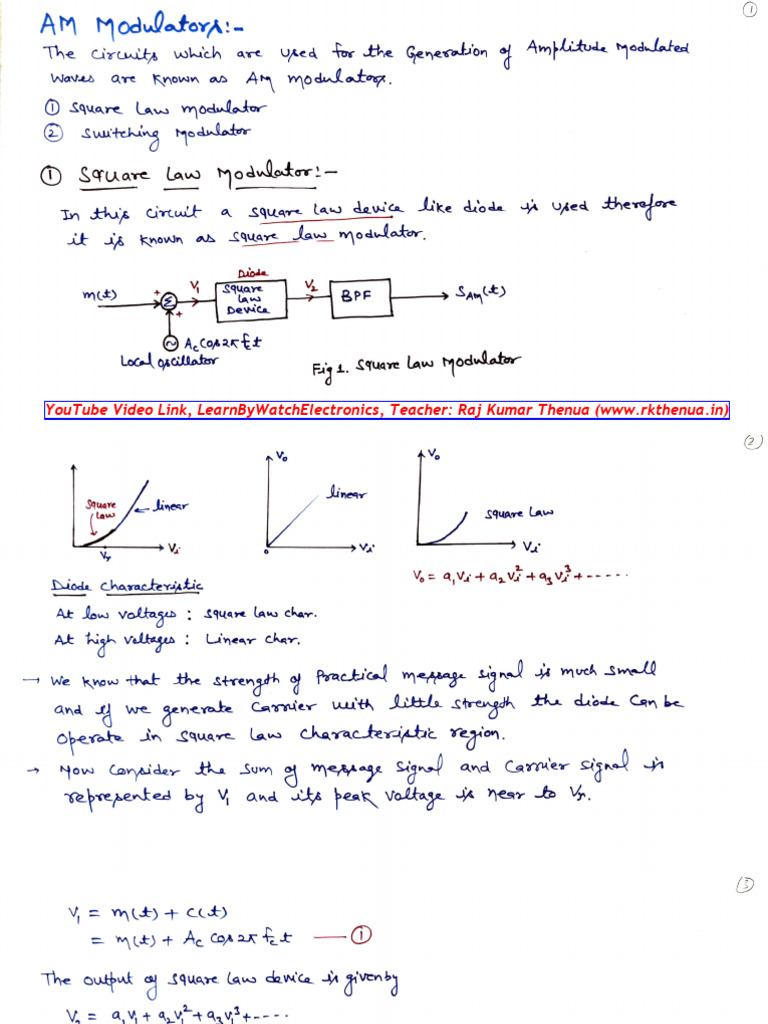 ①
AM Modulators:-
The circuits which are used for the Generation of Amplitude Modulated
waves are known as AM modulators.
① Square Law modulator
② Switching Modulator
① Square Law Modulator:-
In this circuit a square law device like diode is used therefore
it is known as square law modulator.
Diode
m(t) + Σ V₁ Square Law Device V₂ BPF S_AM(t)
+
A_c cos2π f_c t
Local oscillator
Fig 1. Square Law Modulator
YouTube Video Link, LearnByWatchElectronics, Teacher: Raj Kumar Thenua (www.rkthenua.in)
②
Square Law linear Vᵢ Vᵣ
V₀ linear Vᵢ 0
V₀ Square Law Vᵢ
V₀ = a₁Vᵢ + a₂Vᵢ² + a₃Vᵢ³ + -----
Diode Characteristic
At low voltages : Square law char.
At high voltages : Linear char.
→ We know that the strength of Practical message signal is much small
and if we generate carrier with little strength the diode can be
operate in square law characteristic region.
→ Now consider the sum of message signal and carrier signal is
represented by V₁ and its peak voltage is near to Vᵣ.
③
V₁ = m(t) + c(t)
= m(t) + A_c cos 2π f_c t —— ①
The output of square law device is given by
V₂ = a₁v₁ + a₂v₁² + a₃v₁³ + ----